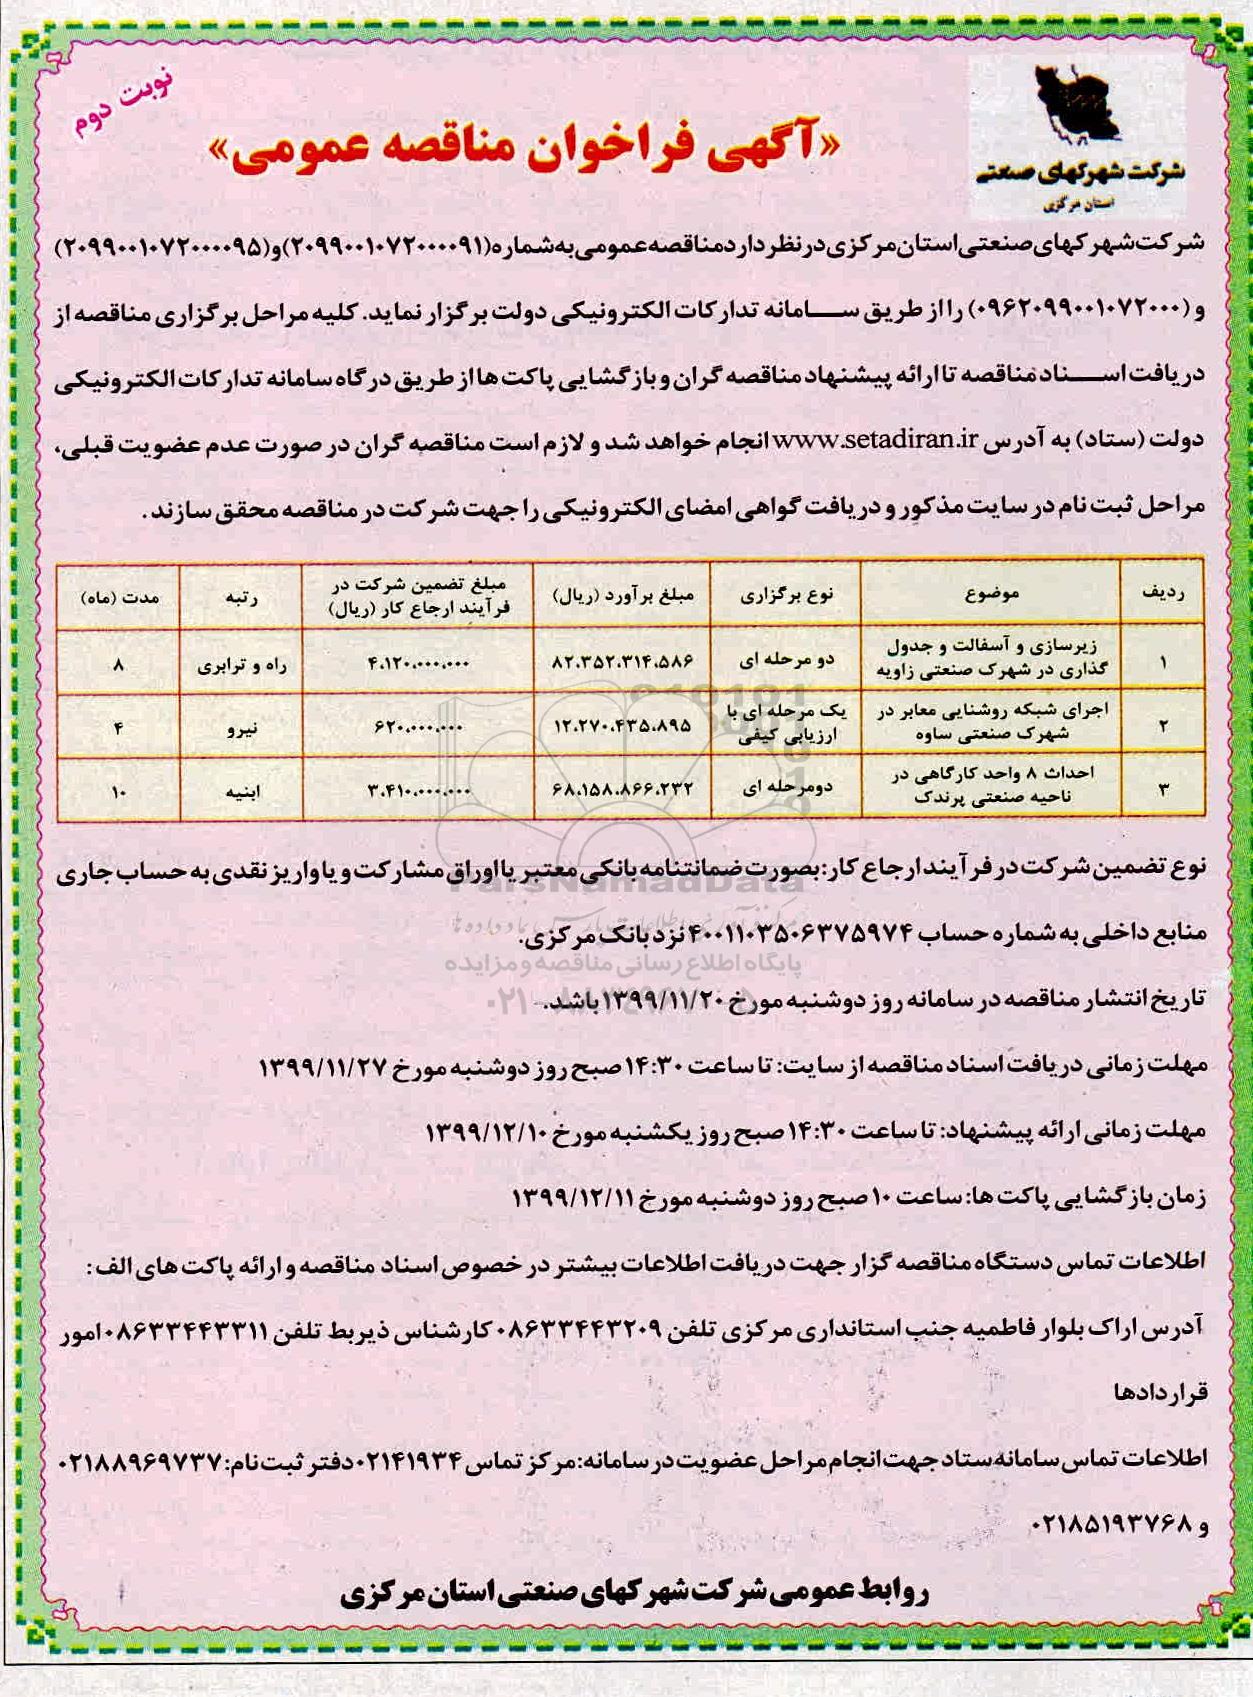 نوبت دوم
شرکت شهرکهای صنعتی
استان مرکزی
«آگهی فراخوان مناقصه عمومی»
شرکت شهرکهای صنعتی استان مرکزی در نظر دارد مناقصه عمومی به شماره (۲۰۹۹۰۰۱۰۷۲۰۰۰۰۹۱) و (۲۰۹۹۰۰۱۰۷۲۰۰۰۰۹۵)
و (۰۹۶۲۰۹۹۰۰۱۰۷۲۰۰۰) را از طریق سامانه تدارکات الکترونیکی دولت برگزار نماید. کلیه مراحل برگزاری مناقصه از
دریافت اسناد مناقصه تا ارائه پیشنهاد مناقصه گران و بازگشایی پاکت ها از طریق درگاه سامانه تدارکات الکترونیکی
دولت (ستاد) به آدرس www.setadiran.ir انجام خواهد شد و لازم است مناقصه گران در صورت عدم عضویت قبلی،
مراحل ثبت نام در سایت مذکور و دریافت گواهی امضای الکترونیکی را جهت شرکت در مناقصه محقق سازند.
ردیف موضوع نوع برگزاری مبلغ برآورد (ریال) مبلغ تضمین شرکت در فرآیند ارجاع کار (ریال) رتبه مدت (ماه)
۱ زیرسازی و آسفالت و جدول گذاری در شهرک صنعتی زاویه دو مرحله ای ۸۲،۳۵۲،۳۱۴،۵۸۶ ۴،۱۲۰،۰۰۰،۰۰۰ راه و ترابری ۸
۲ اجرای شبکه روشنایی معابر در شهرک صنعتی ساوه یک مرحله ای با ارزیابی کیفی ۱۲،۲۷۰،۴۳۵،۸۹۵ ۶۲۰،۰۰۰،۰۰۰ نیرو ۴
۳ احداث ۸ واحد کارگاهی در ناحیه صنعتی پرندک دومرحله ای ۶۸،۱۵۸،۸۶۶،۲۳۲ ۳،۴۱۰،۰۰۰،۰۰۰ ابنیه ۱۰
نوع تضمین شرکت در فرآیند ارجاع کار: بصورت ضمانتنامه بانکی معتبر یا اوراق مشارکت و یا واریز نقدی به حساب جاری
ParsNamadData
منابع داخلی به شماره حساب ۴۰۰۱۱۰۳۵۰۶۳۷۵۹۷۴ نزد بانک مرکزی.
پایگاه اطلاع رسانی مناقصه و مزایده
تاریخ انتشار مناقصه در سامانه روز دوشنبه مورخ ۱۳۹۹/۱۱/۲۰ باشد.
مهلت زمانی دریافت اسناد مناقصه از سایت: تا ساعت ۱۴:۳۰ صبح روز دوشنبه مورخ ۱۳۹۹/۱۱/۲۷
مهلت زمانی ارائه پیشنهاد: تا ساعت ۱۴:۳۰ صبح روز یکشنبه مورخ ۱۳۹۹/۱۲/۱۰
زمان بازگشایی پاکت ها: ساعت ۱۰ صبح روز دوشنبه مورخ ۱۳۹۹/۱۲/۱۱
اطلاعات تماس دستگاه مناقصه گزار جهت دریافت اطلاعات بیشتر در خصوص اسناد مناقصه و ارائه پاکت های الف:
آدرس اراک بلوار فاطمیه جنب استانداری مرکزی تلفن ۰۸۶۳۳۴۴۳۲۰۹ کارشناس ذیربط تلفن ۰۸۶۳۳۴۴۳۳۱۱ امور
قراردادها
اطلاعات تماس سامانه ستاد جهت انجام مراحل عضویت در سامانه: مرکز تماس ۰۲۱۴۱۹۳۴ دفتر ثبت نام: ۰۲۱۸۸۹۶۹۷۳۷
و ۰۲۱۸۵۱۹۳۷۶۸
روابط عمومی شرکت شهرکهای صنعتی استان مرکزی